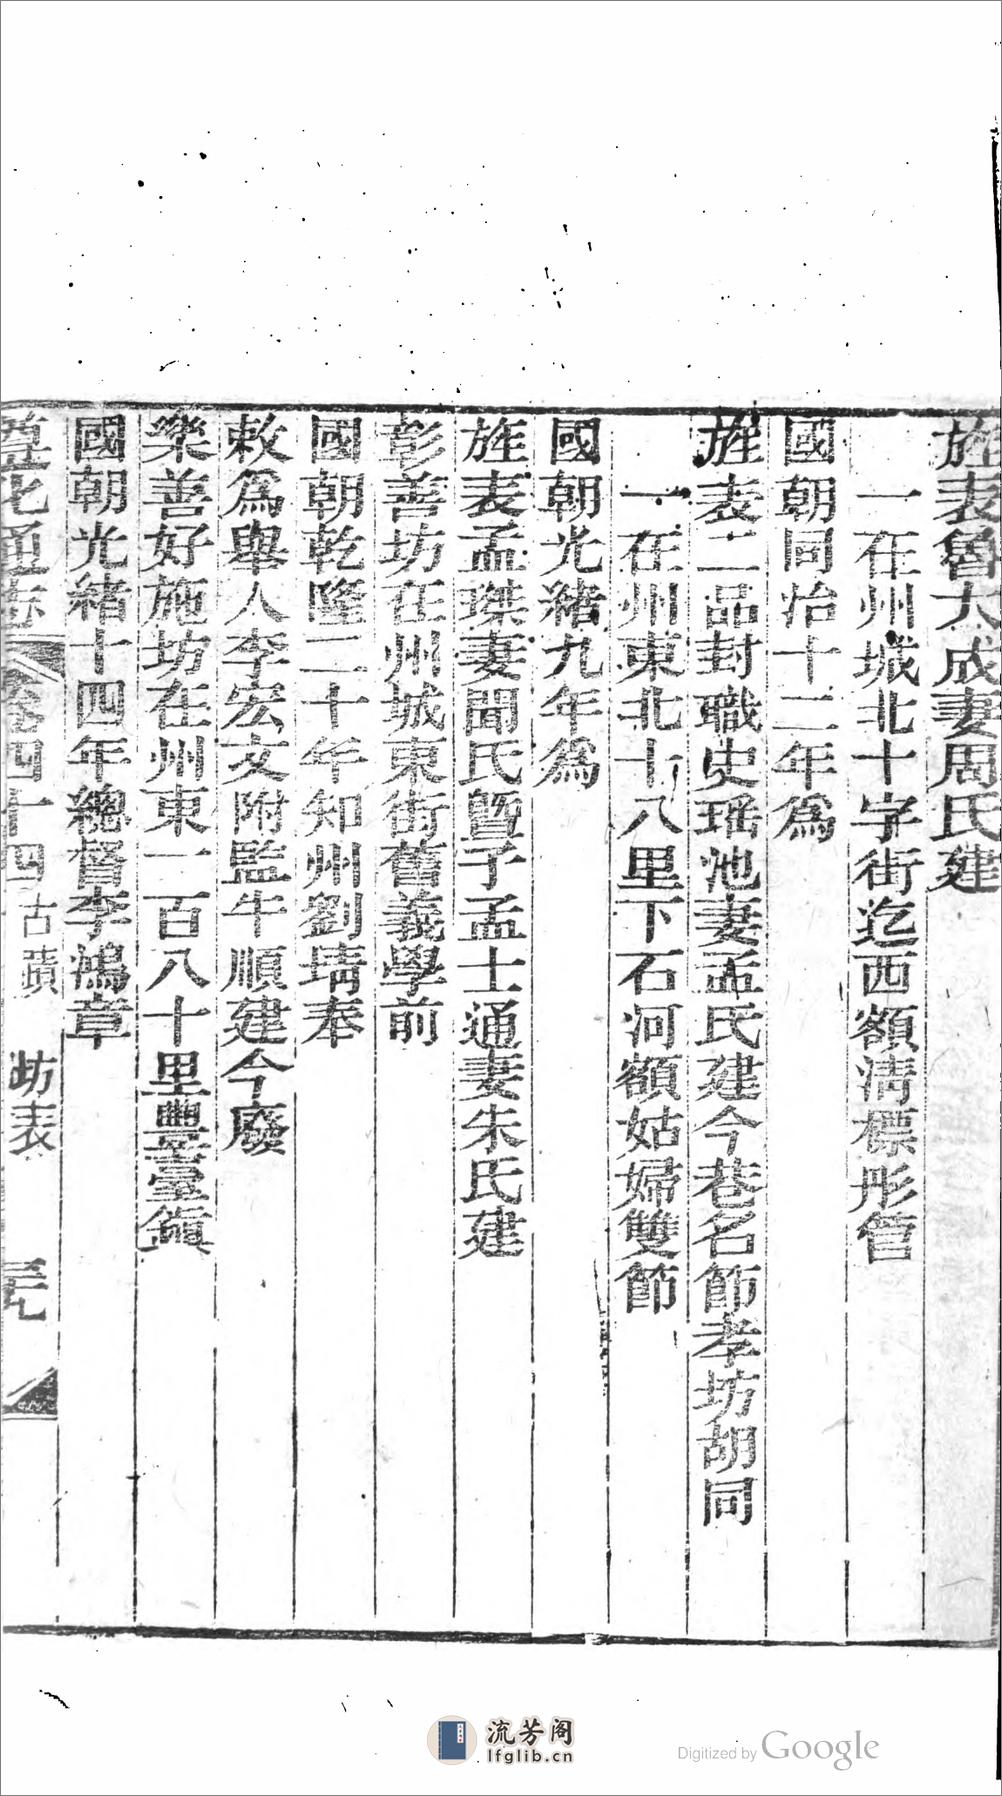 旌表魯大成妻周氏建
一在州城北十字街迄西額淸標彤管
國朝同治十二年爲
旌表二品封職史瑶池妻孟氏建今巷名節孝坊胡同
一在州東北十八里下石河額姑婦雙節
國朝光緒九年爲
旌表孟璨妻聞氏曁子孟士通妻朱氏建
彰善坊在州城東街舊義學前
國朝乾隆二十年知州劉靖奉
敕爲舉人李宏文附監牛順建今廢
樂善好施坊在州東一百八十里豐臺鎭
國朝光緒十四年總督李鴻章
遵化通志 卷四十四 古蹟 坊表
流芳阁
lfglib.cn
Digitized by Google